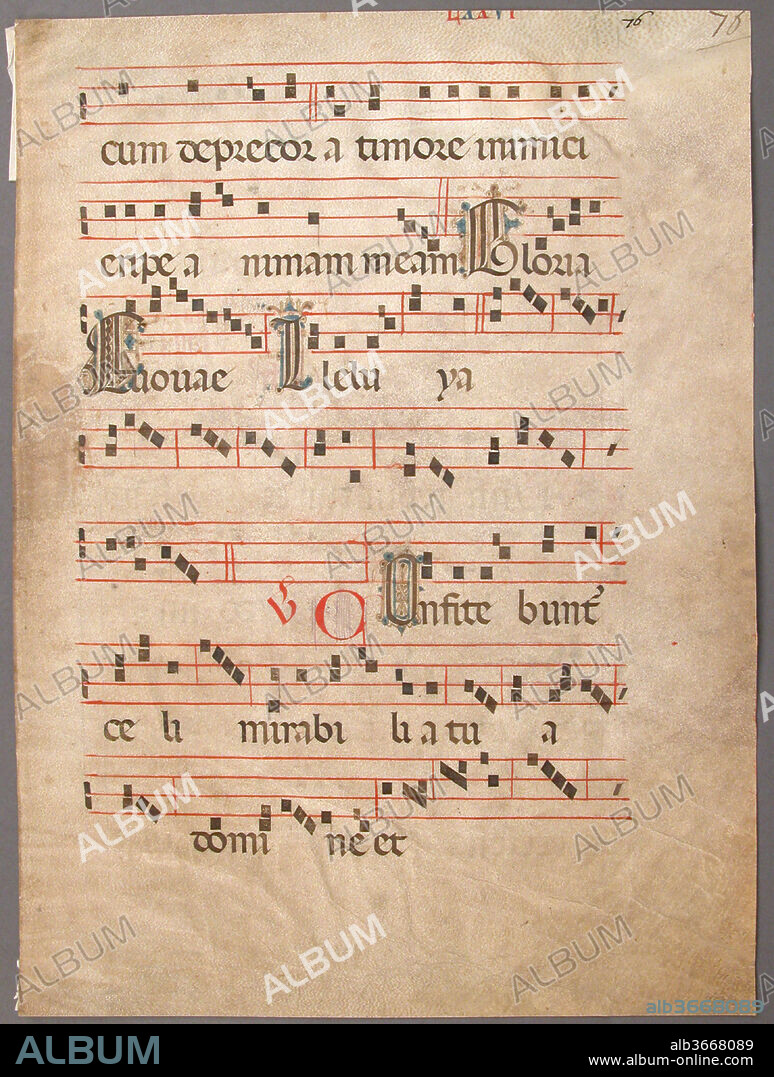 LXXVI 76 76
cum deprecor a timore inimici
eripe a nimam meam. Gloria
Euouae A lelu ya
℣ O Onfite bunt
ce li mirabi li a tu a
domi ne et
ALBUM
alb3668089
ALBUM
alb3668089
www.album-online.com